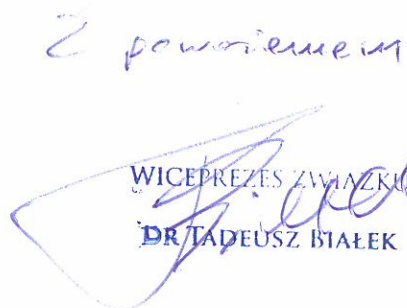 Z poważaniem
WICEPREZES ZWIĄZKU
DR TADEUSZ BIAŁEK